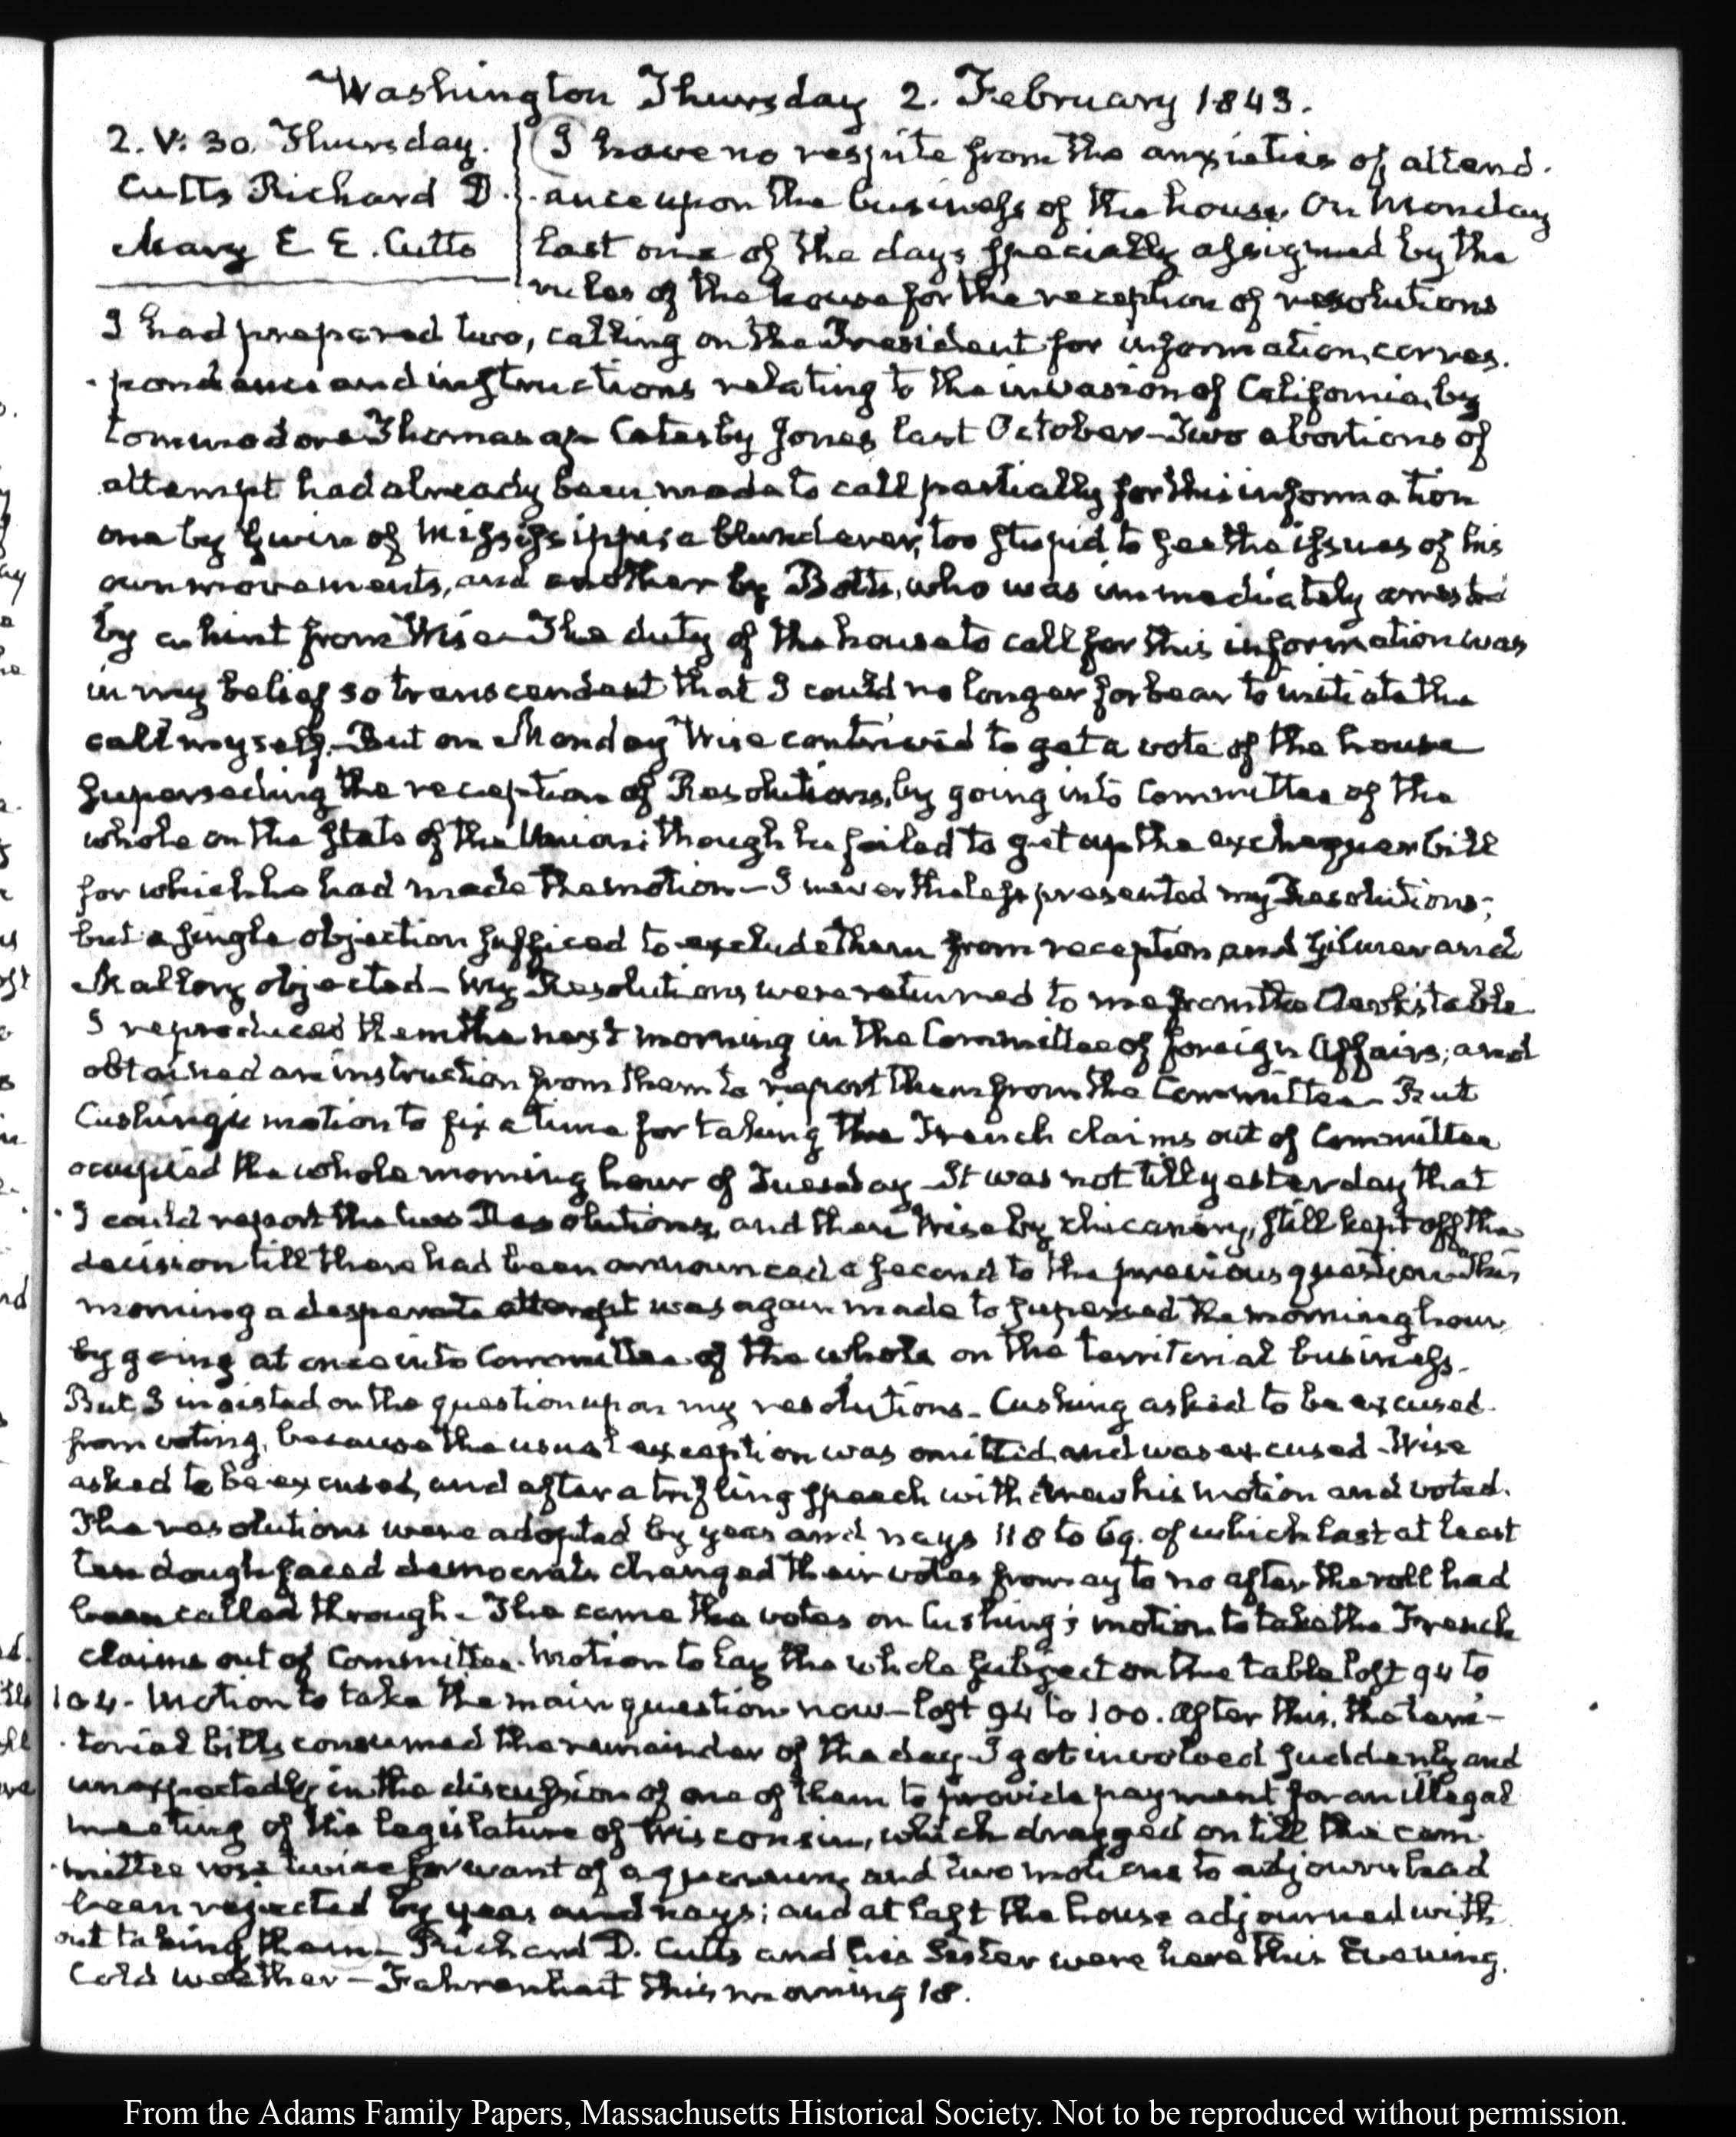 Washington Thursday 2. February 1843.
2. V: 30. Thursday.
Cutts Richard D.
Mary E E. Cutts
I have no respite from the anxieties of attend-
-ance upon the business of the house. On Monday
last one of the days specially assigned by the
rules of the house for the reception of resolutions
I had prepared two, calling on the President for information, corres-
-pondence and instructions relating to the invasion of California, by
Commodore Thomas ap Catesby Jones last October - Two abortions of
attempt had already been made to call partially for this information
one by Gwin of Mississippi, a blunderer, too stupid to see the issues of his
own movements, and another by Botts, who was immediately arrested
by a hint from Wise - The duty of the house to call for this information was
in my belief so transcendent that I could no longer forbear to initiate the
call myself. But on Monday Wise contrived to get a vote of the house
superseding the reception of Resolutions, by going into Committee of the
whole on the State of the Union; though he failed to get up the exchequer bill
for which he had made the motion - I nevertheless presented my Resolutions;
but a single objection sufficed to exclude them from reception and Gilmer and
Mallory objected - My Resolutions were returned to me from the Clerk's table
I reproduced them the next morning in the Committee of foreign Affairs; and
obtained an instruction from them to report them from the Committee - But
Cushing's motion to fix a time for taking the French claims out of Committee
occupied the whole morning hour of Tuesday - It was not till yesterday that
I could report the two Resolutions, and then Wise by chicanery, still kept off the
decision till there had been announced a second to the previous question - This
morning a desperate attempt was again made to supersed the morning hour
by going at once into Committee of the whole on the territorial business.
But I insisted on the question upon my resolutions - Cushing asked to be excused
from voting, because the usual exception was omitted and was excused - Wise
asked to be excused, and after a trifling speech withdrew his motion and voted.
The resolutions were adopted by yeas and nays 118 to 69. of which last at least
ten doughfaced democrats changed their votes from ay to no after the roll had
been called through - The came the votes on Cushing's motion to take the French
claims out of Committee. Motion to lay the whole subject on the table lost 94 to
104 - Motion to take the main question now - lost 94 to 100. After this, the terri-
-torial bills consumed the remainder of the day - I got involved suddenly and
unexpectedly in the discussion of one of them to provide payment for an illegal
meeting of the legislature of Wisconsin, which dragged on till the com-
-mittee rose twice for want of a quorum, and two motions to adjourn had
been rejected by yeas and nays; and at last the house adjourned with
out taking them - Richard D. Cutts and his Sister were here this Evening.
Cold weather - Fahrenhait this morning 18.
From the Adams Family Papers, Massachusetts Historical Society. Not to be reproduced without permission.